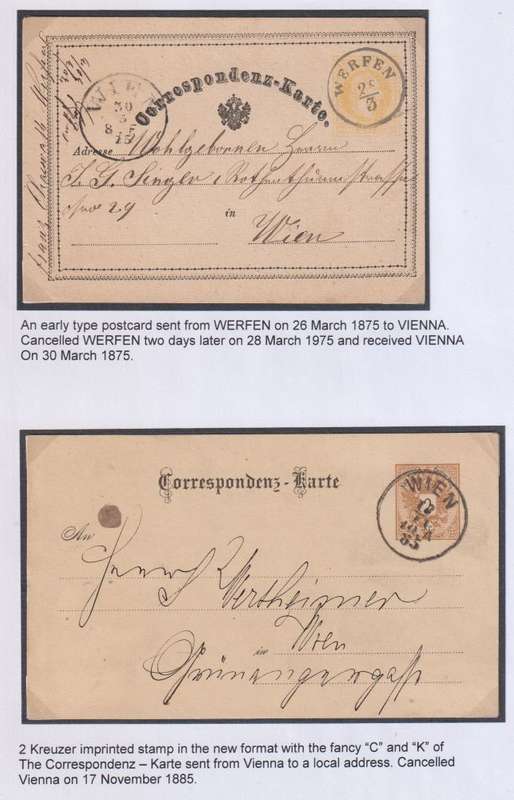 WERFEN
28
3
WIEN
30
3
Correspondenz-Karte.
Adresse Wohlgebornen Herrn
Rothenthurmstrasse
29
in
Wien
An early type postcard sent from WERFEN on 26 March 1875 to VIENNA.
Cancelled WERFEN two days later on 28 March 1975 and received VIENNA
On 30 March 1875.
WIEN
17
85
Correspondenz - Karte
An
Herrn
S Wertheimer
in Wien
Grünangergasse
2 Kreuzer imprinted stamp in the new format with the fancy “C” and “K” of
The Correspondenz – Karte sent from Vienna to a local address. Cancelled
Vienna on 17 November 1885.